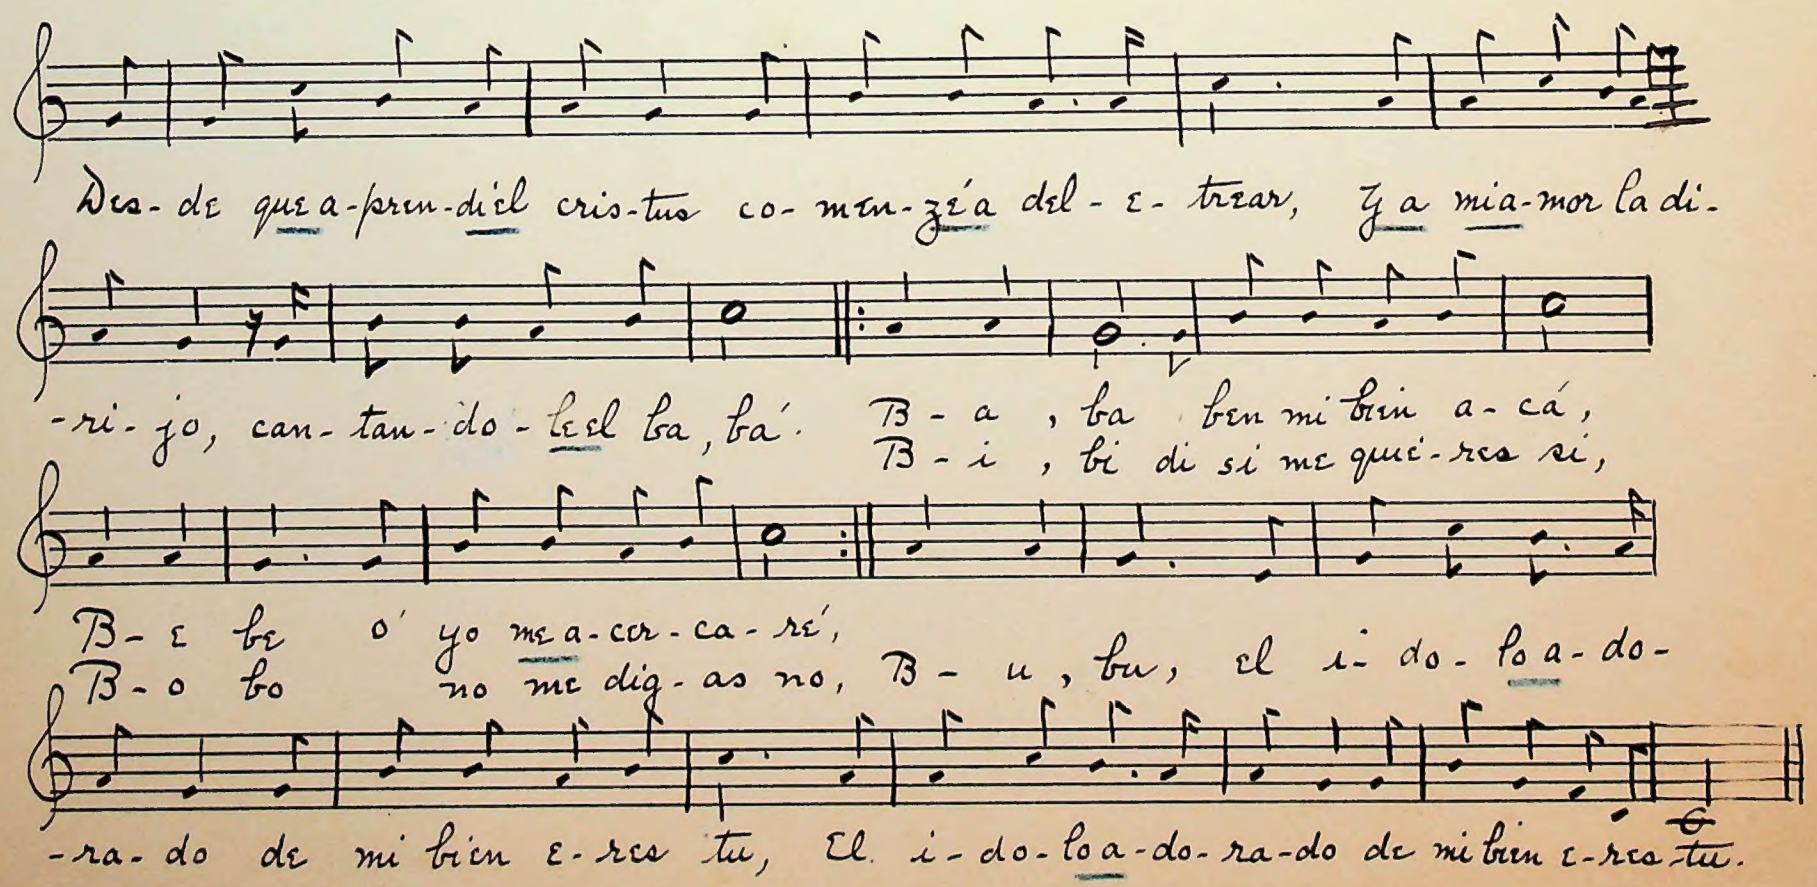 Des-de que a-pren-diél cris-tus co-men-zéa del-e-trear, Y a mia-mor la di-
-ri-jo, can-tan-do-leel ba, bá. B-a, ba ben mi bien a-cá,
B-i, bi di si me quie-res si,
B-e be o' yo me a-cer-ca-ré,
B-o bo no me dig-as no, B-u, bu, el i-do-lo a-do-
-ra-do de mi bien e-res tu, El i-do-lo a-do-ra-do de mi bien e-res-tu.